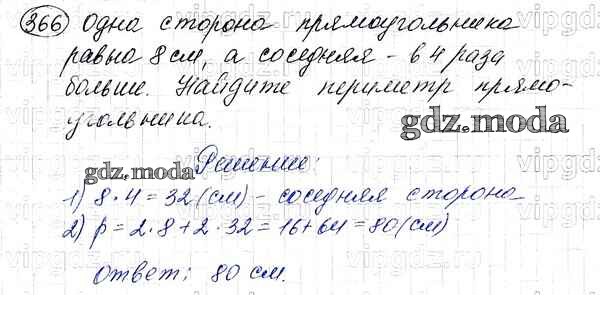 366 Одна сторона прямоугольника
равна 8 см, а соседняя – в 4 раза
больше. Найдите периметр прямо-
угольника.
gdz.moda
Решение:
gdz.moda
1) 8 · 4 = 32 (см) – соседняя сторона
2) P = 2·8 + 2·32 = 16 + 64 = 80 (см)
Ответ: 80 см.